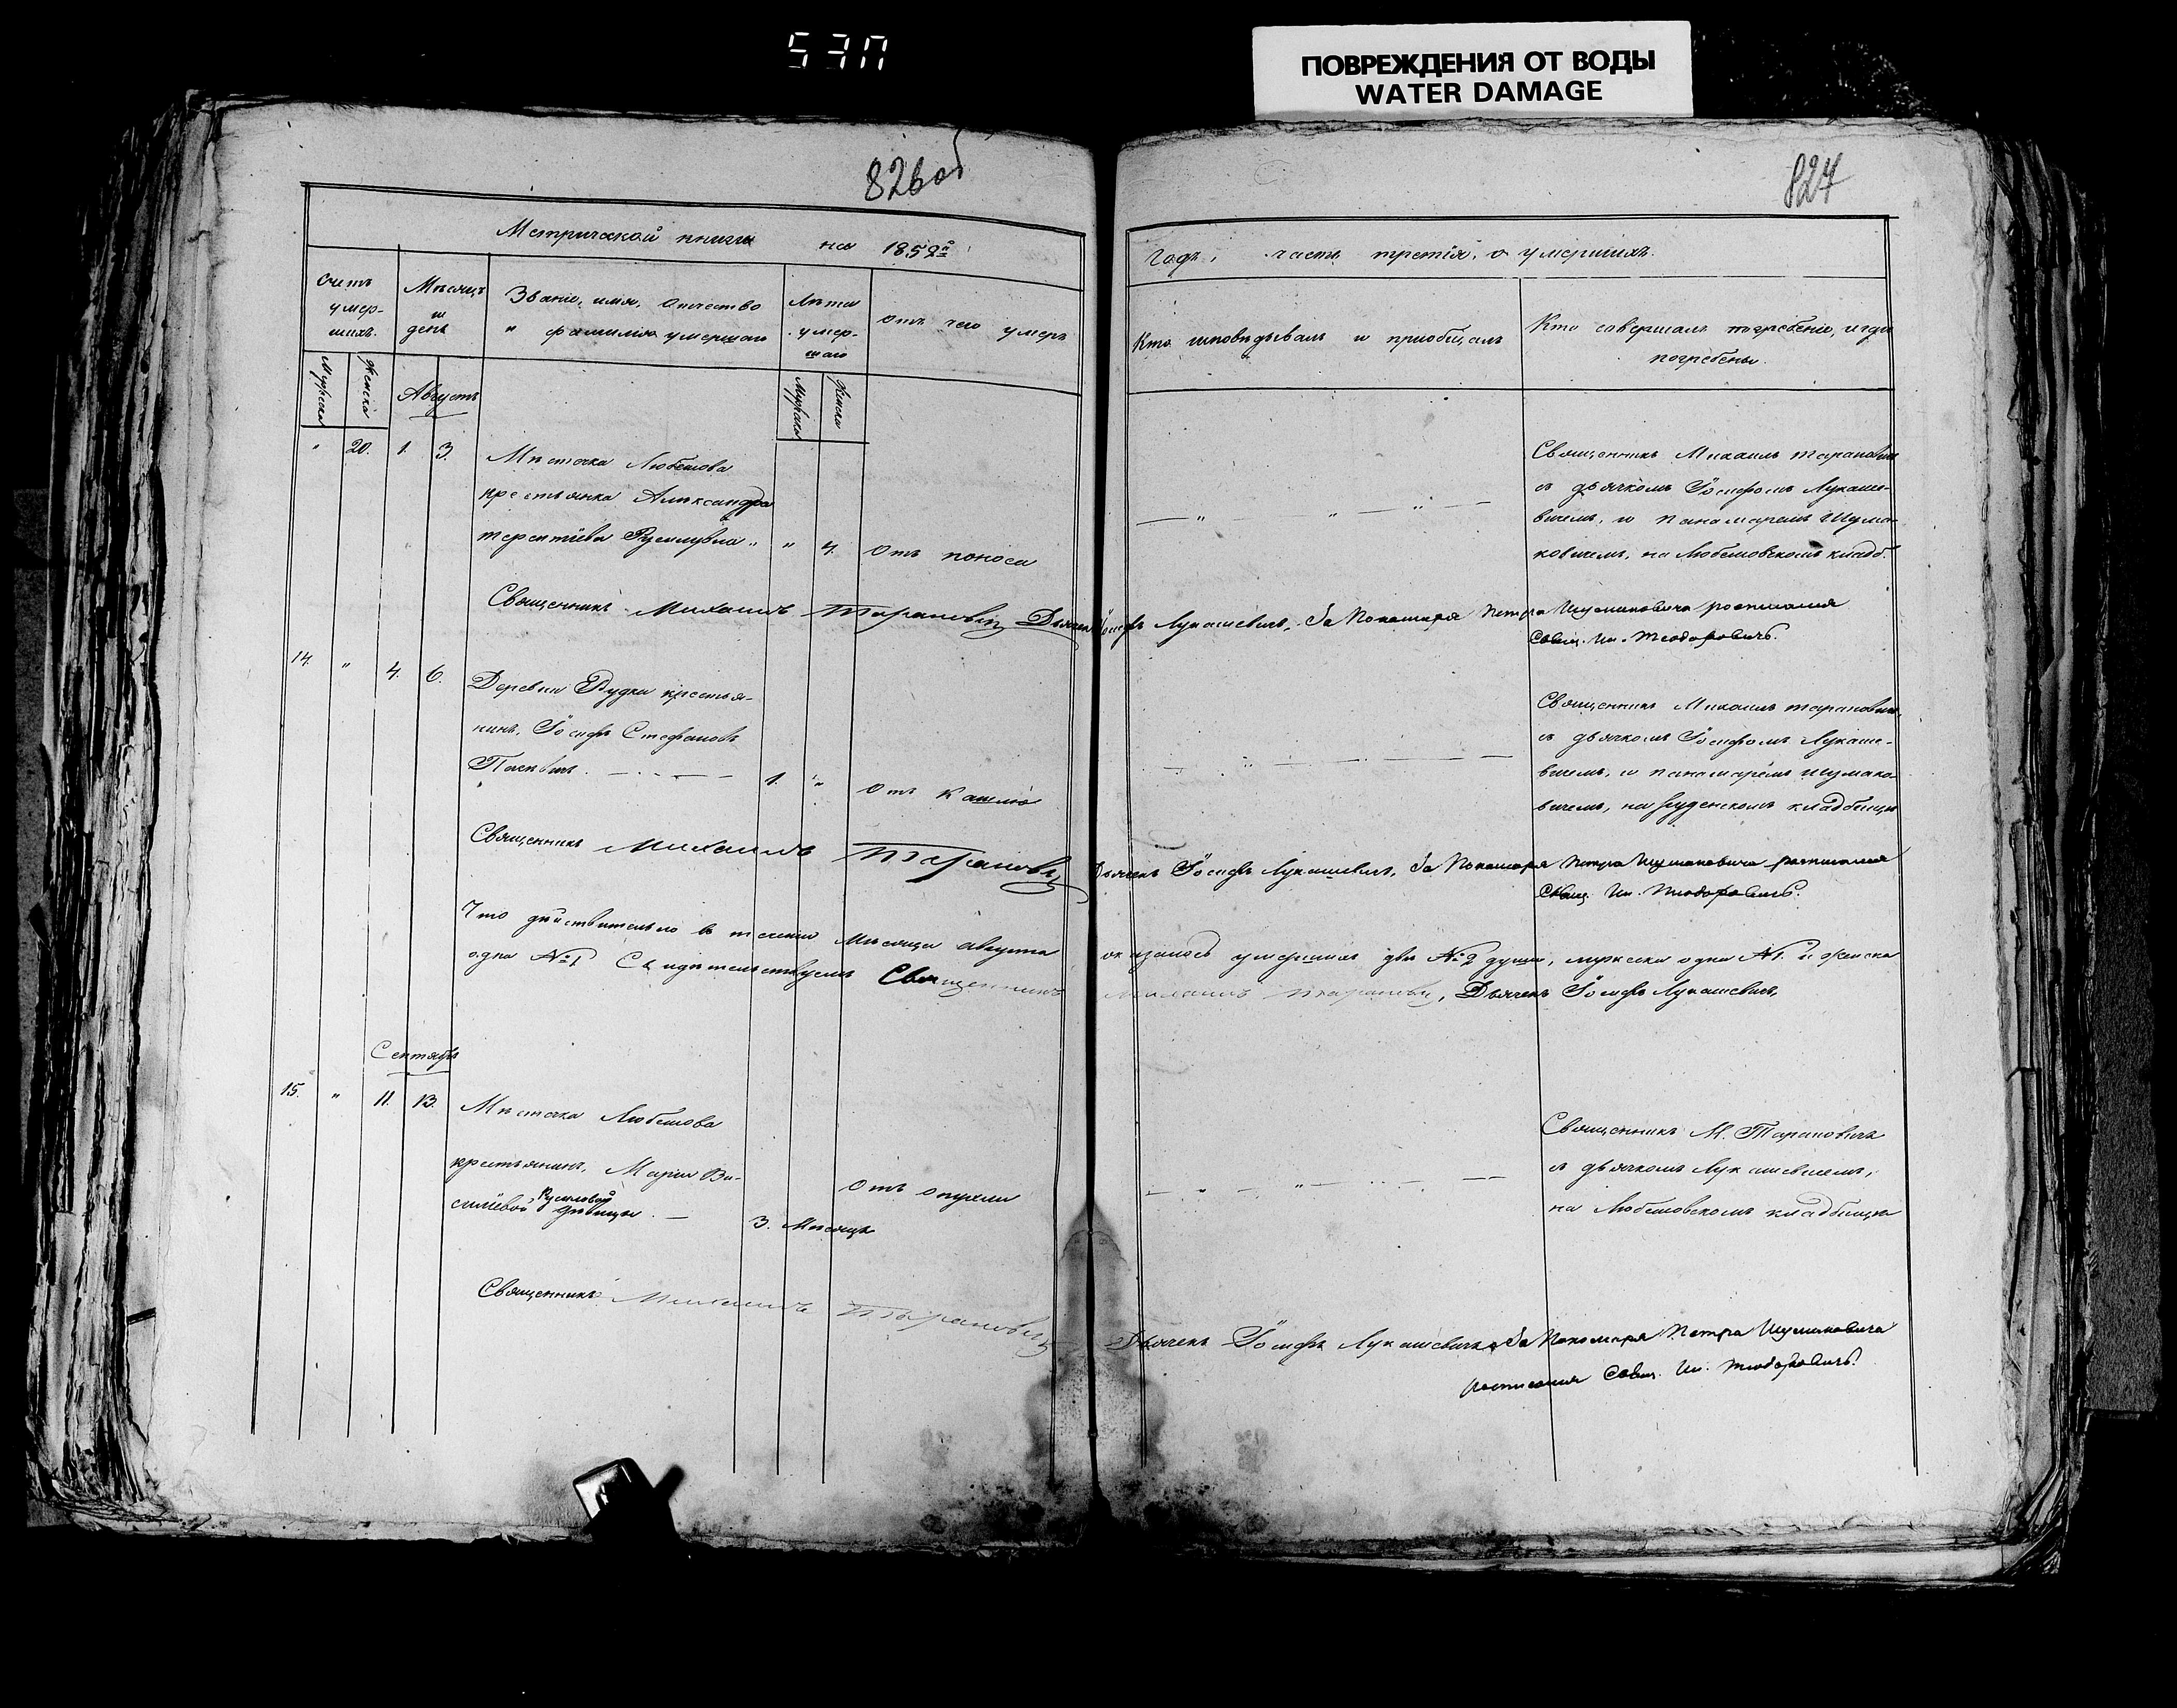 ПОВРЕЖДЕНИЯ ОТ ВОДЫ
WATER DAMAGE
826об
827
Метрической книги на 1852й
Счетъ умер-шихъ.
Мужеска
Женска
Мѣсяцъ и день
Званіе, имя, отчество и фамилія умершаго
Лѣта умер-шаго
Мужеска
Женска
отъ чего умеръ
годъ, часть третія, о умершихъ.
Кто исповѣдывалъ и пріобщалъ
Кто совершалъ погребеніе, и гдѣ погребены.
Августъ
" 20. 1. 3.
Мѣстечка Любешова
крестьянка Александра
терентіева " " 4. отъ поноса
Священникъ Михаилъ тарановичъ
съ дьячкомъ Іосифомъ Лукаше-
вичемъ, и панамаремъ Шума-
ковичемъ, на Любешовскомъ кладб.
Священникъ Михаилъ Тарановичъ Дьячекъ Іосифъ Лукашевичъ, За Понамаря Петра Шумаковича росписался
Свящ. Ил. Теодоровичъ.
14. " 4. 6.
Деревни Рудки крестья-
нинъ, Іосифъ Стефановъ
1. " отъ кашлю
Священникъ Михаилъ тарановичъ,
съ дьячкомъ Іосифомъ Лукаше-
вичемъ, и панамаремъ шумако-
вичемъ, на Руденскомъ кладбищѣ
Священникъ Михаилъ Тарановичъ Дьячекъ Іосифъ Лукашевичъ, За Понамаря Петра Шумаковича росписался
Свящ. Ил. Теодоровичъ.
Что дѣйствительно въ теченіи мѣсяца августа оказалось умершихъ двѣ №2 души, мужеска одна №1. и женска
одна №1. Свидѣтельствуемъ Священникъ Михаилъ Тарановичъ, Дьячекъ Іосифъ Лукашевичъ,
Сентябрь
15. " 11. 13.
Мѣстечка Любешова
крестьянинъ, Маріи Ва-
силіевой дѣвицы. 3. Мѣсяцъ отъ опухли
Священникъ М. Тарановичъ
съ дьячкомъ Лукашевичемъ,
на Любешовскомъ кладбищѣ
Священникъ Михаилъ Тарановичъ Дьячекъ Іосифъ Лукашевичъ, За Понамаря Петра Шумаковича
росписался Свящ. Ил. Теодоровичъ.